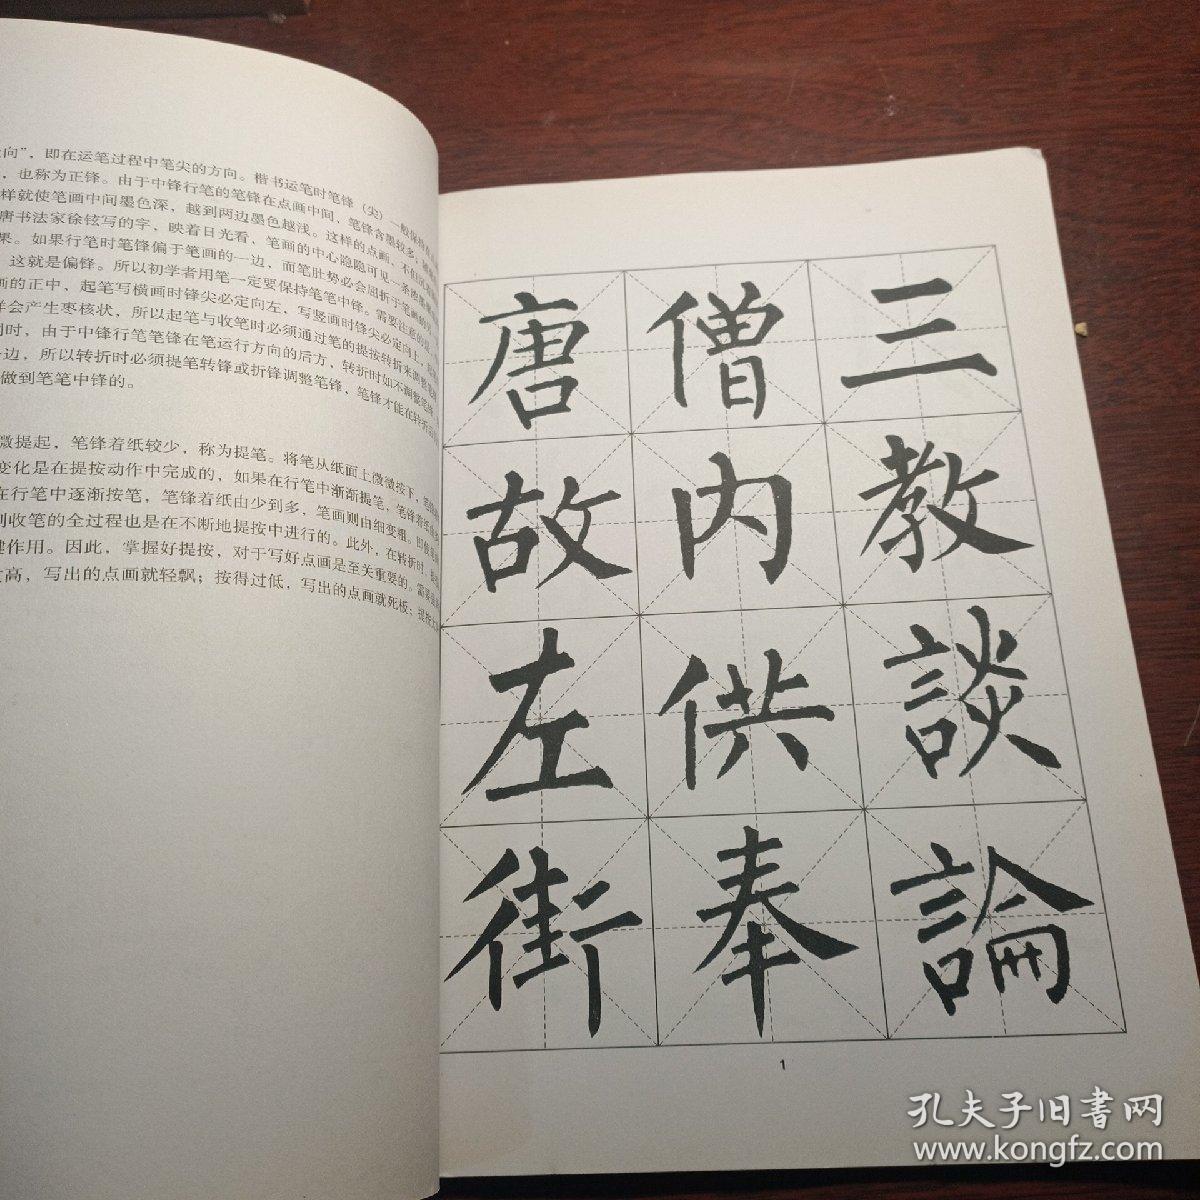 向”，即在运笔过程中笔尖的方向。楷书运笔时笔锋（尖）一般保持在
，也称为正锋。由于中锋行笔的笔锋在点画中间，笔锋含墨较多，
样就使笔画中间墨色深，越到两边墨色越浅。这样的点画，不但
唐书法家徐铉写的字，映着日光看，笔画的中心隐隐可见一条浓墨
果。如果行笔时笔锋偏于笔画的一边，而笔肚势必会屈折于笔画的另
，这就是偏锋。所以初学者用笔一定要保持笔笔中锋。需要注意的是，
画的正中，起笔写横画时锋尖必定向左，写竖画时锋尖必定向上，
样会产生枣核状，所以起笔与收笔时必须通过笔的提按转折来调整笔
同时，由于中锋行笔笔锋在笔运行方向的后方，转折时如不调整笔锋，
边，所以转折时必须提笔转锋或折锋调整笔锋，笔锋才能在转折
做到笔笔中锋的。
微提起，笔锋着纸较少，称为提笔。将笔从纸面上微微按下，笔锋
变化是在提按动作中完成的，如果在行笔中渐渐提笔，笔锋着纸
在行笔中逐渐按笔，笔锋着纸由少到多，笔画则由细变粗。即使
到收笔的全过程也是在不断地提按中进行的。此外，在转折时，
键作用。因此，掌握好提按，对于写好点画是至关重要的。需要
高，写出的点画就轻飘；按得过低，写出的点画就死板；提按
三教談論
僧内供奉
唐故左街
1
孔夫子旧书网
www.kongfz.com